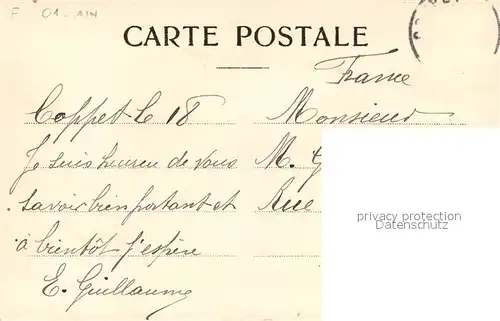 F 01-AIN
CARTE POSTALE
France
Coppet le 18
Je suis heureu de vous
savoir bien portant et
à bientôt j'espère
E. Guillaume
Monsieur
M. G
Rue
privacy protection
Datenschutz